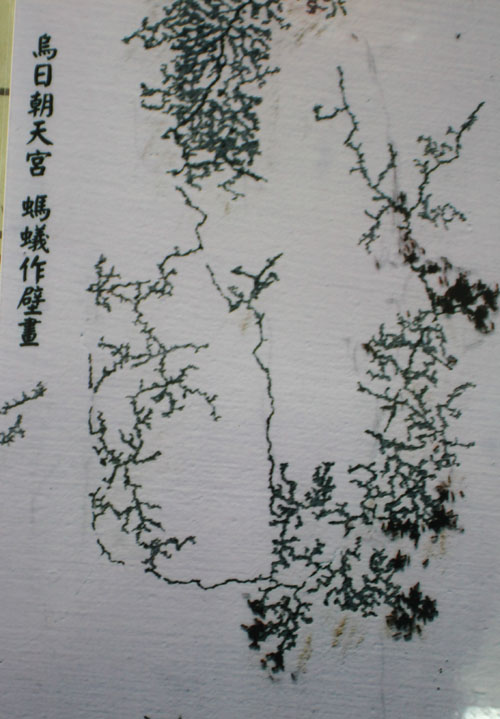 烏日朝天宮 螞蟻作壁畫